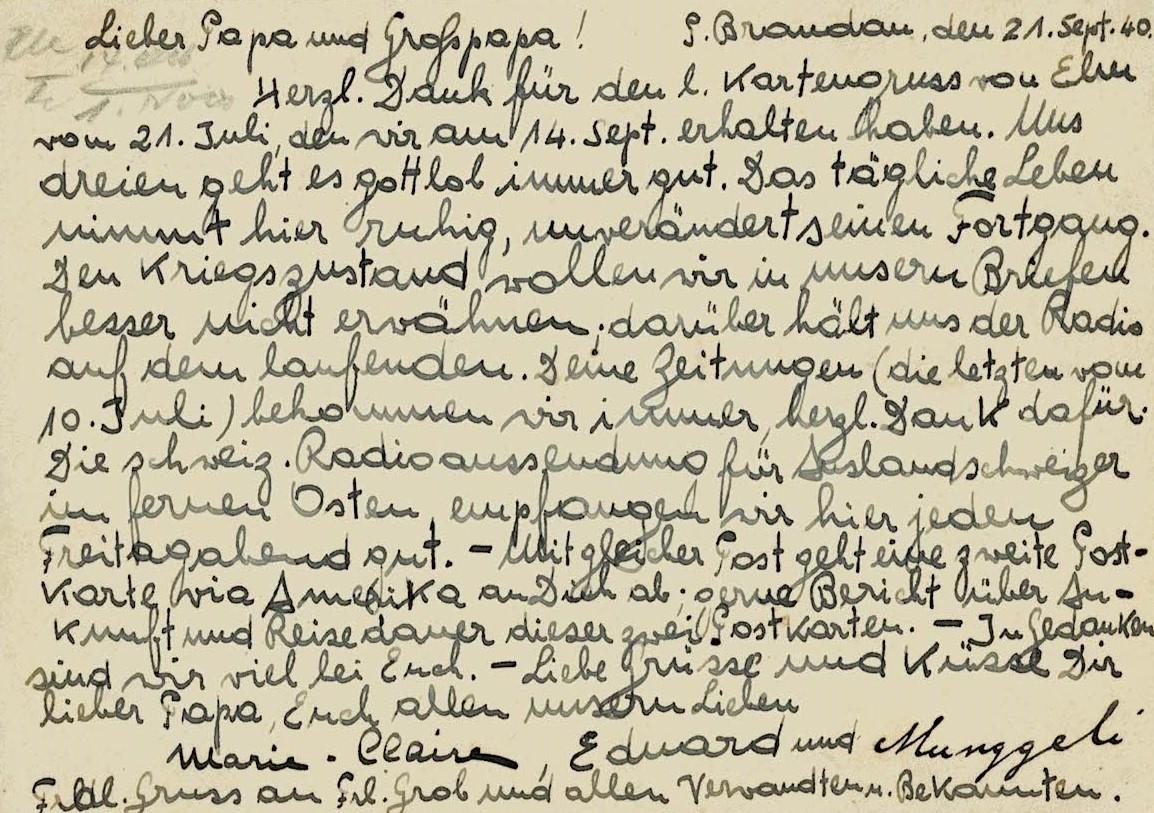 Lieber Papa und Großpapa! P. Brandan, den 21. Sept. 40.
14.
1. Nov.
Herzl. Dank für den l. Kartengruss von Elm
vom 21. Juli, den wir am 14. Sept. erhalten haben. Uns
dreien geht es gottlob immer gut. Das tägliche Leben
nimmt hier ruhig, unverändert seinen Fortgang.
Den Kriegszustand wollen wir in unsern Briefen
besser nicht erwähnen; darüber hält uns der Radio
auf dem laufenden. Deine Zeitungen (die letzten vom
10. Juli) bekommen wir immer, herzl. Dank dafür.
Die schweiz. Radioaussendung für Auslandschweizer
im fernen Osten, empfangen wir hier jeden
Freitagabend gut. – Mit gleicher Post geht eine zweite Post-
karte via Amerika an Dich ab; gerne Bericht über An-
kunft und Reisedauer dieser zwei Postkarten. – In Gedanken
sind wir viel bei Euch. – Liebe Grüsse und Küsse Dir
lieber Papa, Euch allen unsern Lieben
Marie-Claire, Eduard und Munggeli
Frdl. Gruss an Frl. Grob und allen Verwandten u. Bekannten.